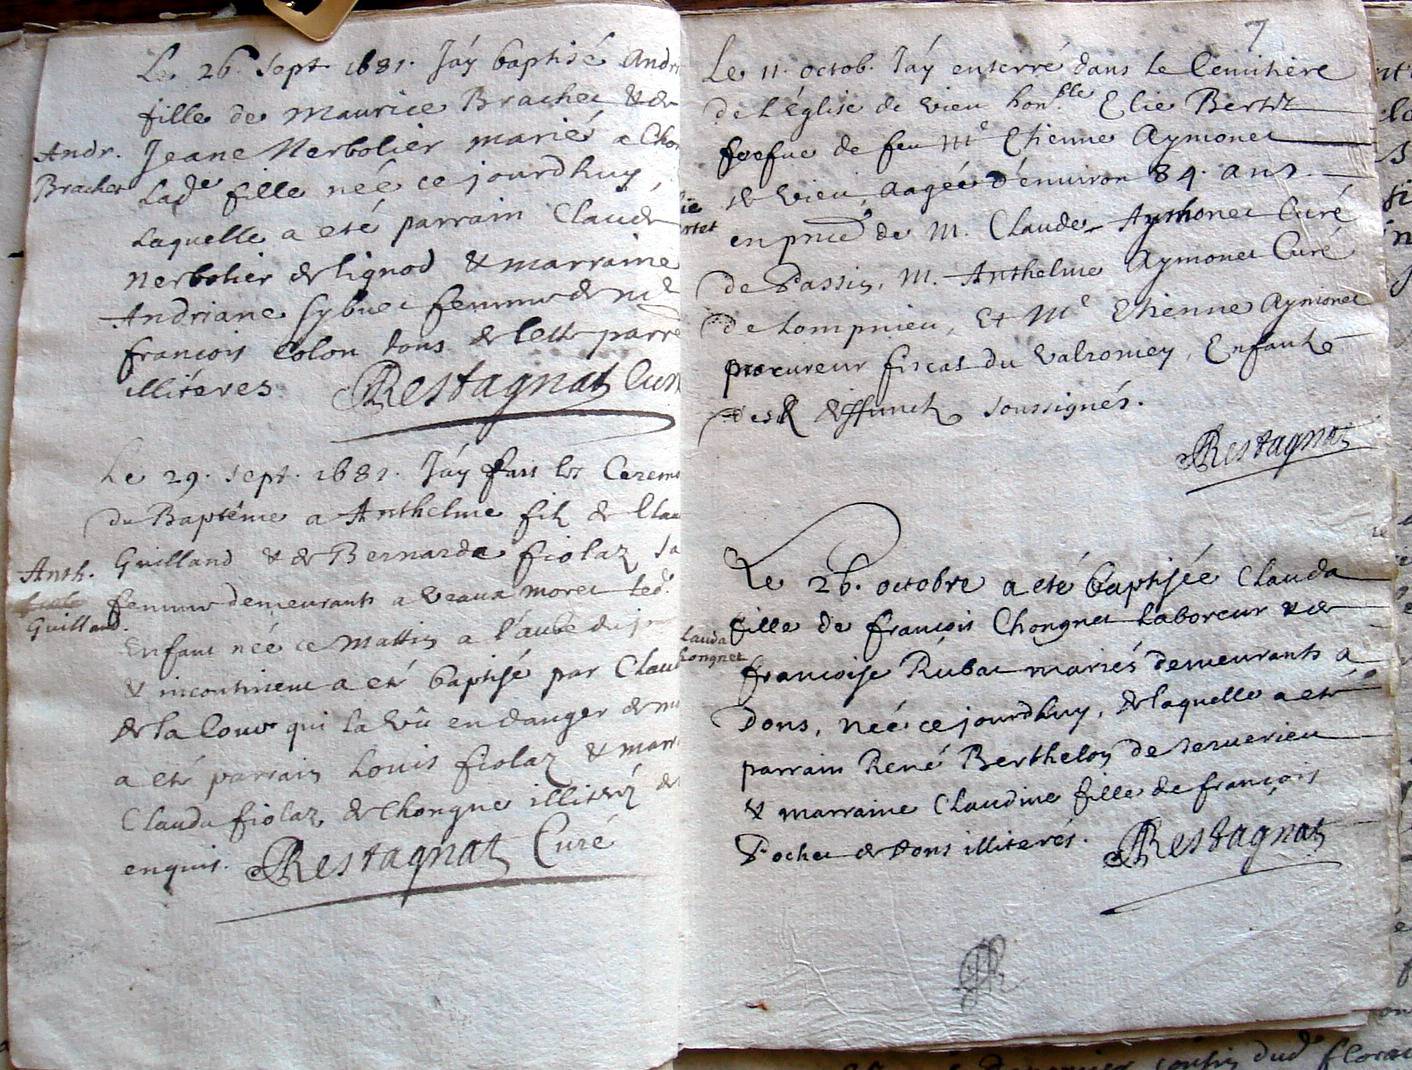 Le 26. Sept. 1681. J'áy baptisé Andr
fille de Maurice Brachet & de
Andr.
Brachet
Jeane Nerbolier mariés a Chon
Lad.e fille née ce jourdhuy,
Laquelle a eté parrain Claude
Nerbolier de lignod & marraine
Andriane Sybuet femme de
francois Colon tous de parre
illiteres Restagnat Curé
Le 29. Sept. 1681. J'áy fait les Cerem
du Baptéme a Anthelme filz de Clau
Anth.
Guilland.
Guilland & de Bernarde fiolaz sa
femme demeurants a Veaux moret led.
Enfant née ce mattin a l'aube du j
& incontinent a eté baptisé par Clau
de la Cour qui la vû en danger de m
a eté parrain Louis fiolaz & marr
Clauda fiolaz, de Chongne illiteréz de
enquis. Restagnat Curé
7
Le 11. octob. J'áy enterré dans le Cemitière
de L'église de vieu hon.ble Elie Bertet
ie
rtet
foefue de feu M.e Etienne Aymonet
de vieu, aagée d'environ 84. ans.
en pnce de M. Claude Aymonet Curé
de Passin, M. Anthelme Aymonet Curé
de Lompnieu, Et M.e Etienne Aymonet
procureur fiscal du Valromey, Enfants
soussignés.
Restagnat
Le 26. octobre a eté baptisée Clauda
lauda
hongnet
fille de françois Chongnet Laboreur & de
francoise Rubat mariés demeurants a
Dons, née ce jourdhuy, de laquelle a eté
parrain René Berthelon de Serverieu
& marraine Claudine fille de françois
Pochet de Dons illiterés. Restagnat